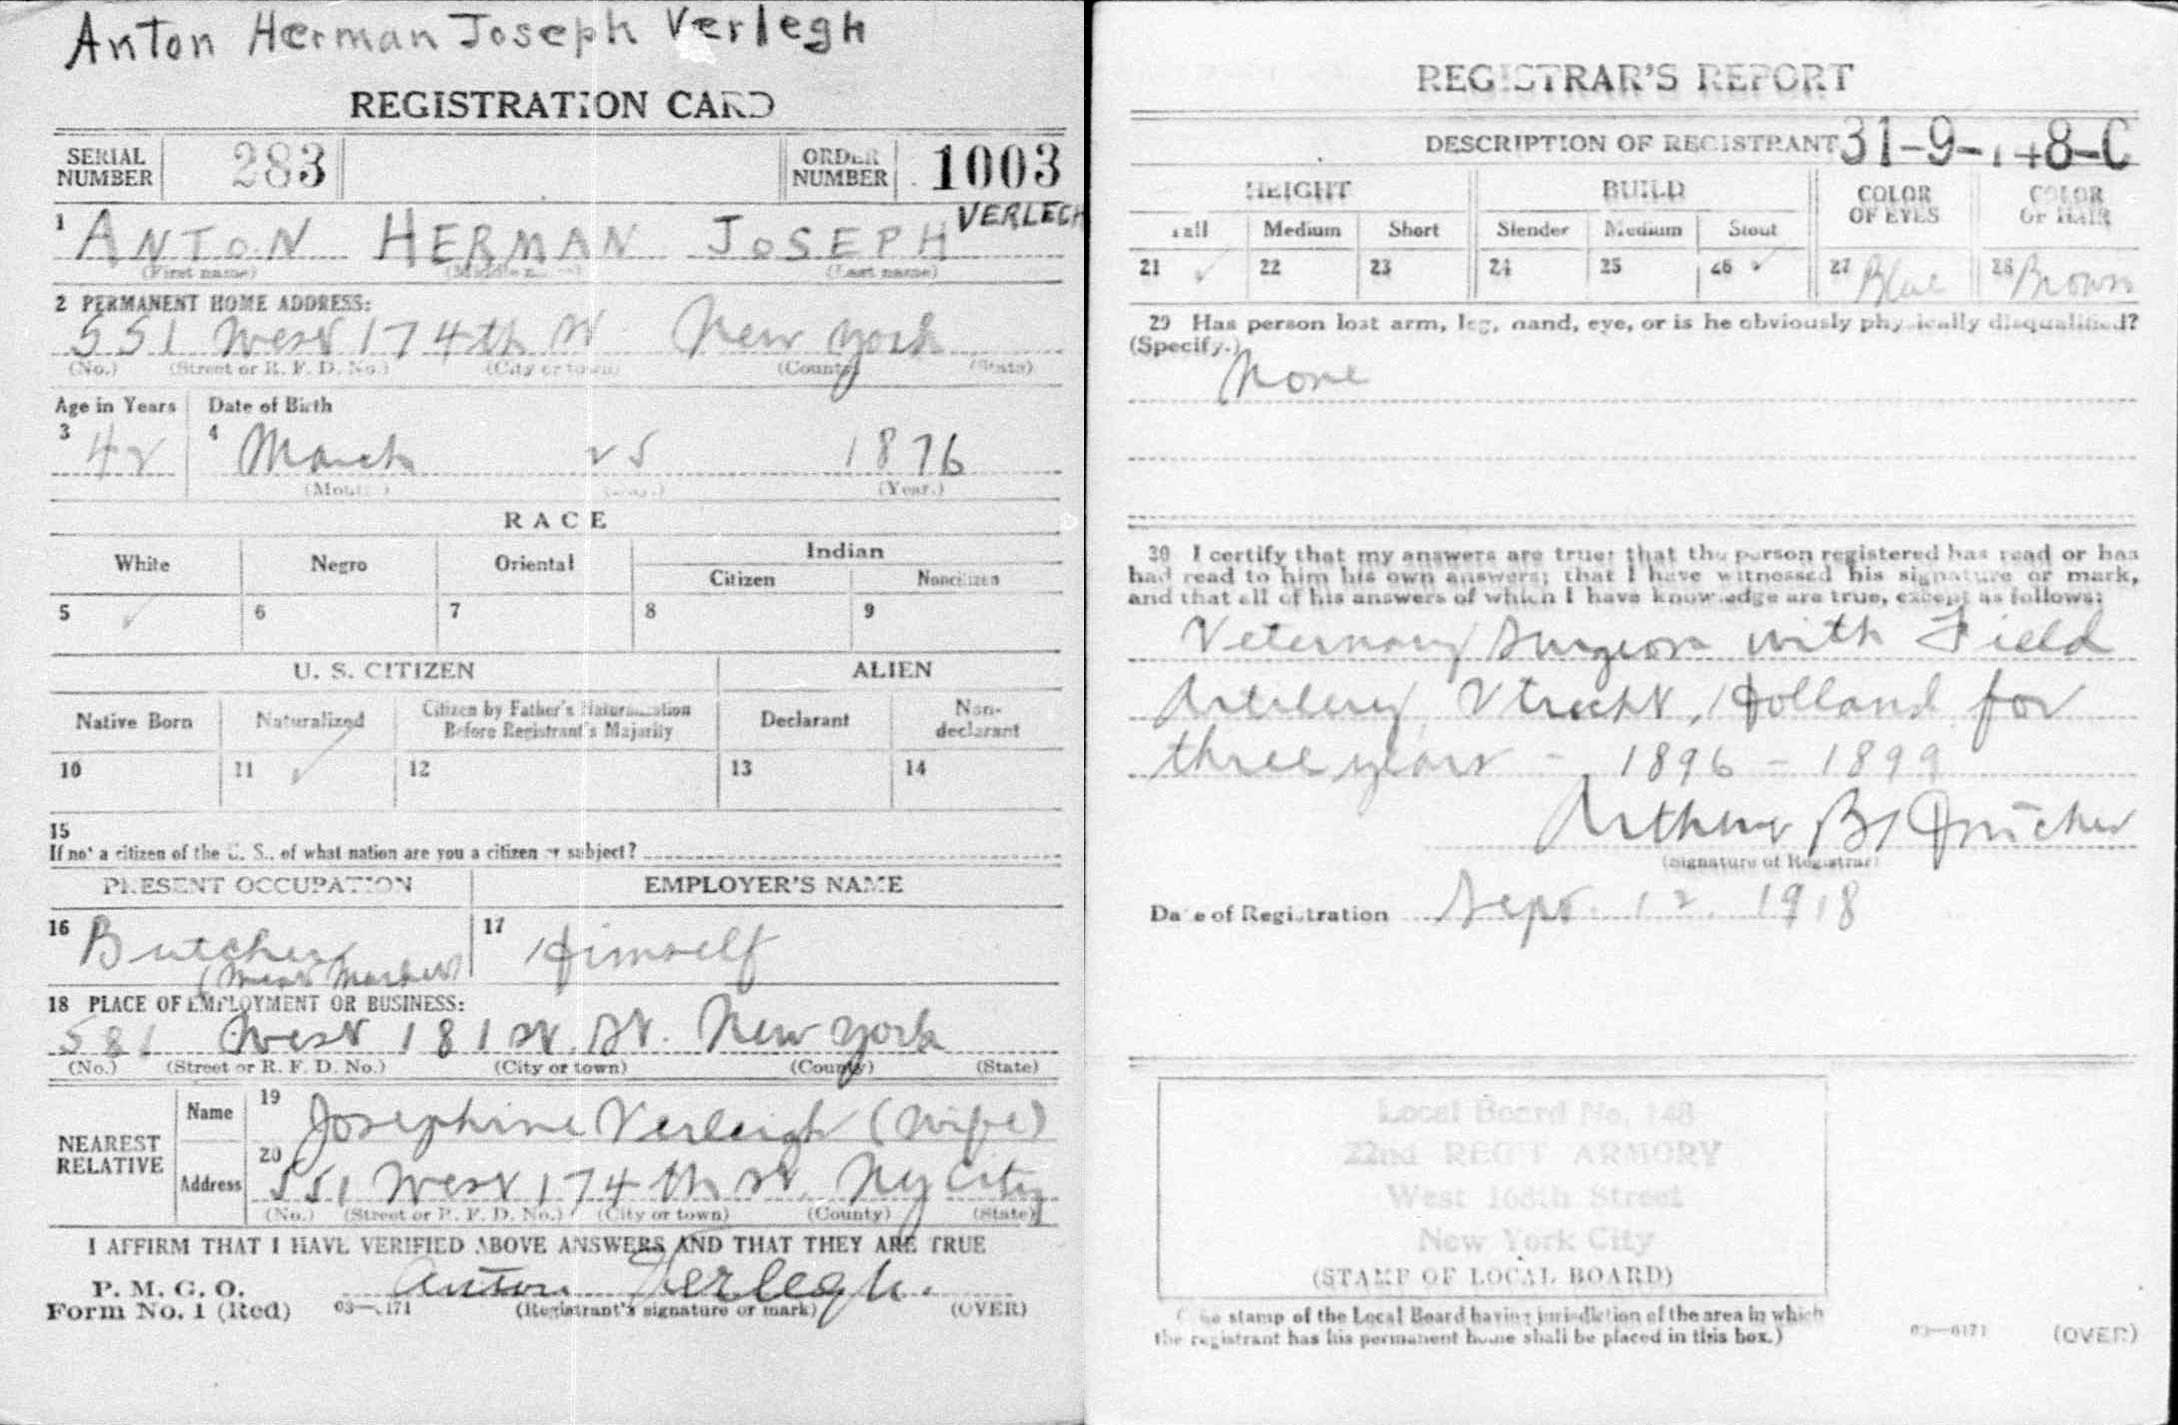 Anton Herman Joseph Verlegh
REGISTRATION CARD
SERIAL NUMBER 283 ORDER NUMBER 1003
1 ANTON HERMAN JOSEPH VERLEGH
(First name) (Middle name) (Last name)
2 PERMANENT HOME ADDRESS:
551 West 174th St New York
(No.) (Street or R. F. D. No.) (City or town) (County) (State)
Age in Years Date of Birth
3 42 4 March 25 1876
(Month.) (Day.) (Year.)
RACE
White Negro Oriental Indian
Citizen Noncitizen
5 ✓ 6 7 8 9
U. S. CITIZEN ALIEN
Native Born Naturalized Citizen by Father's Naturalization Before Registrant's Majority Declarant Non-declarant
10 11 ✓ 12 13 14
15
If not a citizen of the U. S., of what nation are you a citizen or subject?
PRESENT OCCUPATION EMPLOYER'S NAME
16 Butcher 17 Himself
(Meat Market)
18 PLACE OF EMPLOYMENT OR BUSINESS:
581 West 181 St. St. New York
(No.) (Street or R. F. D. No.) (City or town) (County) (State)
NEAREST RELATIVE
Name 19 Josephine Verleigh (Wife)
Address 20 551 West 174th St. Ny City
(No.) (Street or R. F. D. No.) (City or town) (County) (State)
I AFFIRM THAT I HAVE VERIFIED ABOVE ANSWERS AND THAT THEY ARE TRUE
P. M. G. O.
Form No. 1 (Red) 03—6171 Anton Verlegh.
(Registrant's signature or mark) (OVER)
REGISTRAR'S REPORT
31-9-148-C
DESCRIPTION OF REGISTRANT
HEIGHT BUILD COLOR OF EYES COLOR OF HAIR
Tall Medium Short Slender Medium Stout
21 ✓ 22 23 24 25 26 ✓ 27 Blue 28 Brown
29 Has person lost arm, leg, hand, eye, or is he obviously physically disqualified?
(Specify.)
None
30 I certify that my answers are true; that the person registered has read or has
had read to him his own answers; that I have witnessed his signature or mark,
and that all of his answers of which I have knowledge are true, except as follows:
Veternary Surgeon with Field
Artilery, Utrecht, Holland for
three years - 1896 - 1899
Arthur B
(Signature of Registrar)
Date of Registration Sept. 12. 1918
Local Board No. 148
22nd REG'T ARMORY
West 168th Street
New York City
(STAMP OF LOCAL BOARD)
(The stamp of the Local Board having jurisdiction of the area in which
the registrant has his permanent home shall be placed in this box.)
03—6171 (OVER)